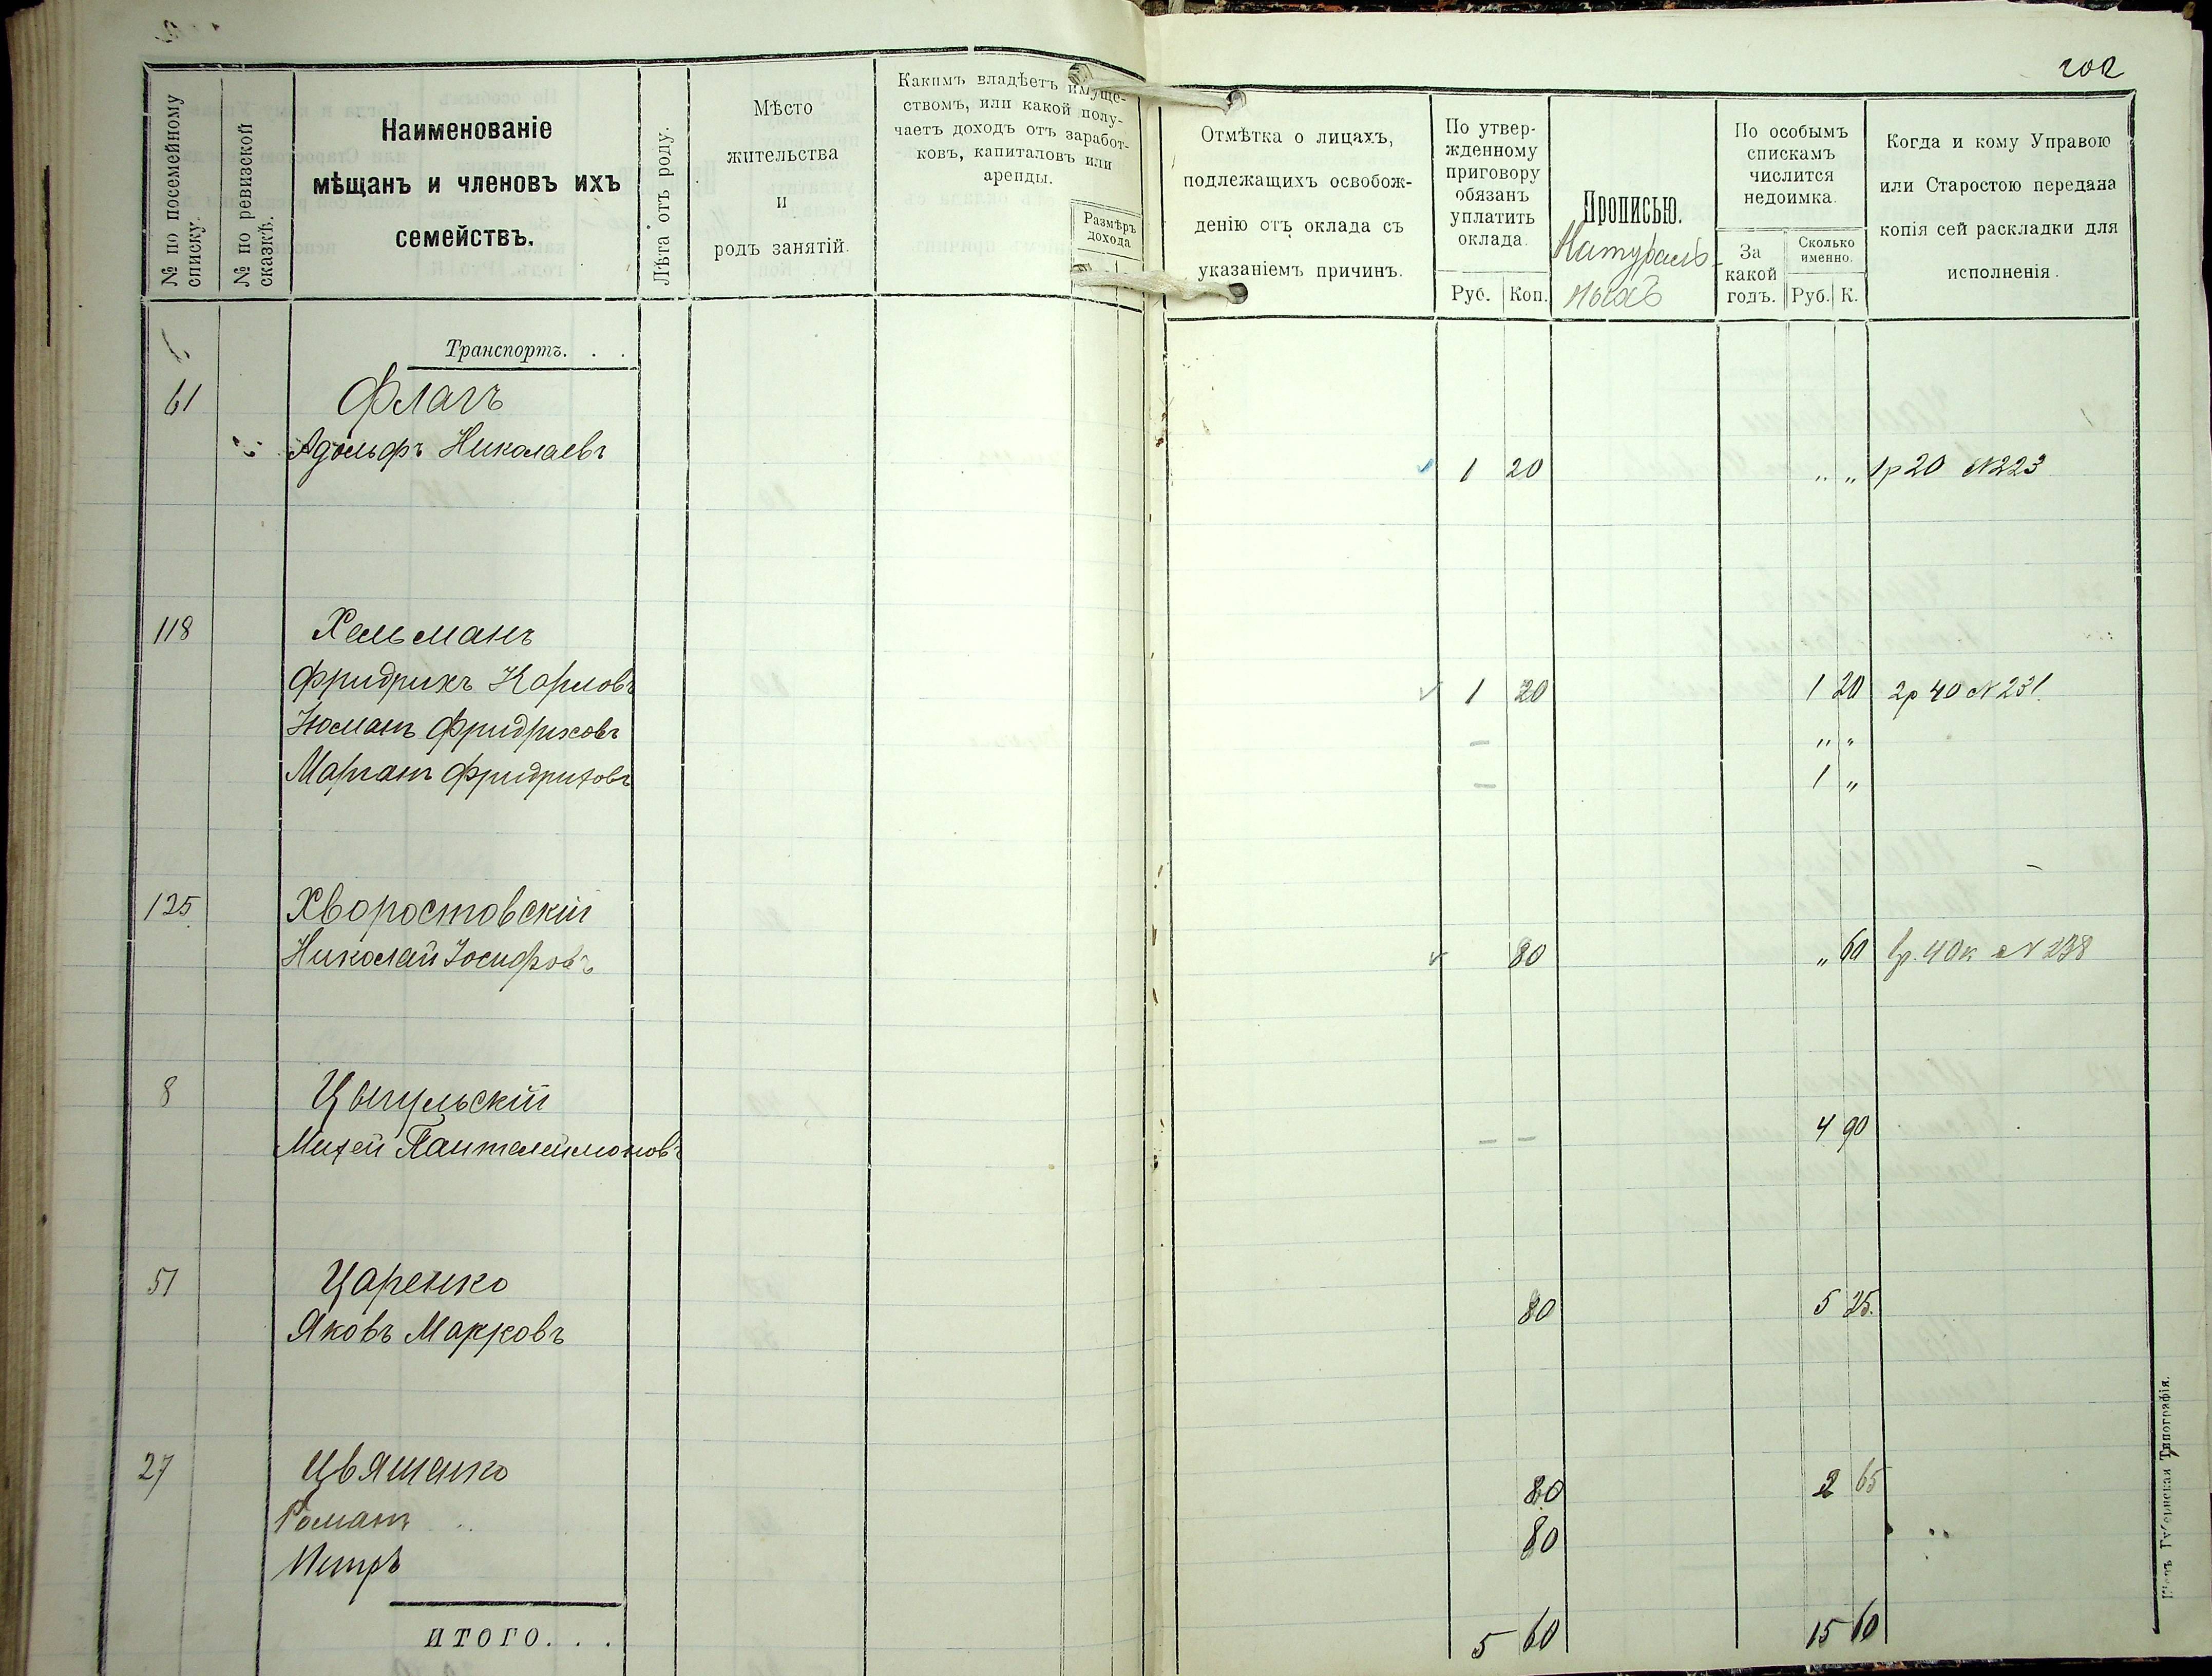 202
№ по посемейному списку.
№ по ревизской сказкѣ.
Наименованіе
мѣщанъ и членовъ ихъ
семействъ.
Лѣта отъ роду.
Мѣсто
жительства
и
родъ занятій.
Какимъ владѣетъ имуще-
ствомъ, или какой полу-
чаетъ доходъ отъ заработ-
ковъ, капиталовъ или
аренды.
Размѣръ
дохода
Отмѣтка о лицахъ,
подлежащихъ освобож-
денію отъ оклада съ
указаніемъ причинъ.
По утвер-
жденному
приговору
обязанъ
уплатить
оклада.
Руб. Коп.
Прописью.
Натураль-
ныхъ
По особымъ
спискамъ
числится
недоимка.
За
какой
годъ.
Сколько
именно.
Руб. К.
Когда и кому Управою
или Старостою передана
копія сей раскладки для
исполненія.
Транспортъ. . .
61 Флагъ
Адольфъ Николаевъ 1 20 „ „ 1р 20 №223
118 Хельманъ
Фридрихъ Карловъ 1 20 1 20 2р 40 №231.
Фридриховъ — „ „
Фридриховъ — 1 „
125 Хворостовскій
Николай Іосифовъ 80 „ 60 1р. 40к №238
8 Цыгульскій
Михей Пантелеймоновъ — — 4 90
51 Царенко
Яковъ Марковъ 80 5 25.
27 Цвяшенко 80 2 65
Романъ 80
Петръ
ИТОГО. . . 5 60 15 60
Губернская Типографія.